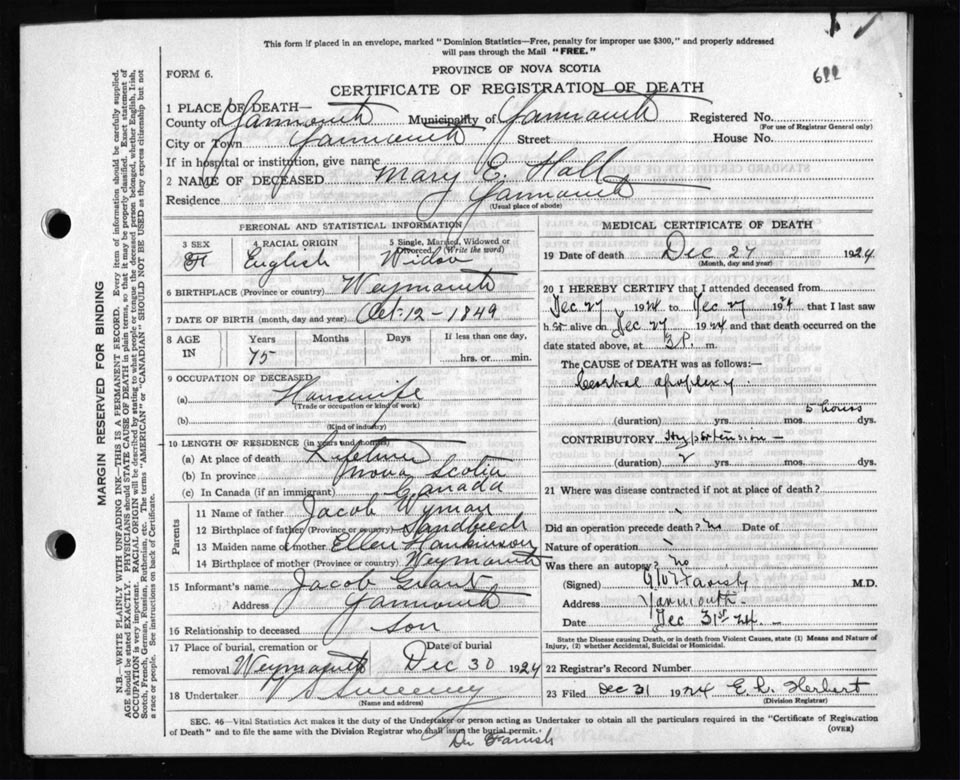 This form if placed in an envelope, marked "Dominion Statistics—Free, penalty for improper use $300," and properly addressed
will pass through the Mail "FREE."
PROVINCE OF NOVA SCOTIA
FORM 6.
CERTIFICATE OF REGISTRATION OF DEATH
1 PLACE OF DEATH—
County of Yarmouth Municipality of Yarmouth Registered No.
(For use of Registrar General only)
City or Town Yarmouth Street House No.
If in hospital or institution, give name
2 NAME OF DECEASED Mary E. Hall
Residence Yarmouth
(Usual place of abode)
MARGIN RESERVED FOR BINDING
N.B.—WRITE PLAINLY WITH UNFADING INK—THIS IS A PERMANENT RECORD. Every item of information should be carefully supplied.
AGE should be stated EXACTLY. PHYSICIANS should STATE CAUSE OF DEATH in plain terms, so that it may be properly classified. Exact statement of
OCCUPATION is very important. RACIAL ORIGIN will be described by stating to what people or tongue the deceased person belonged, whether English, Irish,
Scotch, French, German, Russian, Ruthenian, etc. The terms "AMERICAN" or "CANADIAN" SHOULD NOT BE USED as they express citizenship but not
a race or people. See instructions on back of Certificate.
PERSONAL AND STATISTICAL INFORMATION
3 SEX 4 RACIAL ORIGIN 5 Single, Married, Widowed or
Divorced. (Write the word)
F English Widow
6 BIRTHPLACE (Province or country) Weymouth
7 DATE OF BIRTH (month, day and year) Oct-12-1849
8 AGE IN Years Months Days If less than one day,
75 hrs. or min.
9 OCCUPATION OF DECEASED
(a) Housewife
(Trade or occupation or kind of work)
(b)
(Kind of industry)
10 LENGTH OF RESIDENCE (in years and months)
(a) At place of death Lifetime
(b) In province Nova Scotia
(c) In Canada (if an immigrant) Canada
Parents
11 Name of father Jacob Wyman
12 Birthplace of father (Province or country) Sandbeech
13 Maiden name of mother Ellen Hankinson
14 Birthplace of mother (Province or country) Weymouth
15 Informant's name Jacob Grant
Address Yarmouth
16 Relationship to deceased Son
17 Place of burial, cremation or Date of burial
removal Weymouth Dec 30 1924
18 Undertaker V S Sweeney
(Name and address)
MEDICAL CERTIFICATE OF DEATH
19 Date of death Dec 27 1924
(Month, day and year)
20 I HEREBY CERTIFY that I attended deceased from
Dec 27 1924 to Dec 27 1924 that I last saw
h er alive on Dec 27 1924 and that death occurred on the
date stated above, at 3 P. m.
The CAUSE of DEATH was as follows:—
Cerebral apoplexy
5 hours
(duration) yrs. mos. dys.
CONTRIBUTORY Hypertension —
(duration) 2 yrs. mos. dys.
21 Where was disease contracted if not at place of death?
Did an operation precede death? No Date of
Nature of operation
Was there an autopsy? No
(Signed) Farish M.D.
Address Yarmouth-
Date Dec 31st 24. -
State the Disease causing Death, or in death from Violent Causes, state (1) Means and Nature of
Injury, (2) whether Accidental, Suicidal or Homicidal.
22 Registrar's Record Number
23 Filed Dec 31 1924 E. L. Herbert
(Division Registrar)
SEC. 46—Vital Statistics Act makes it the duty of the Undertaker or person acting as Undertaker to obtain all the particulars required in the "Certificate of Registration
of Death" and to file the same with the Division Registrar who shall issue the burial permit. (OVER)
Dr Farish